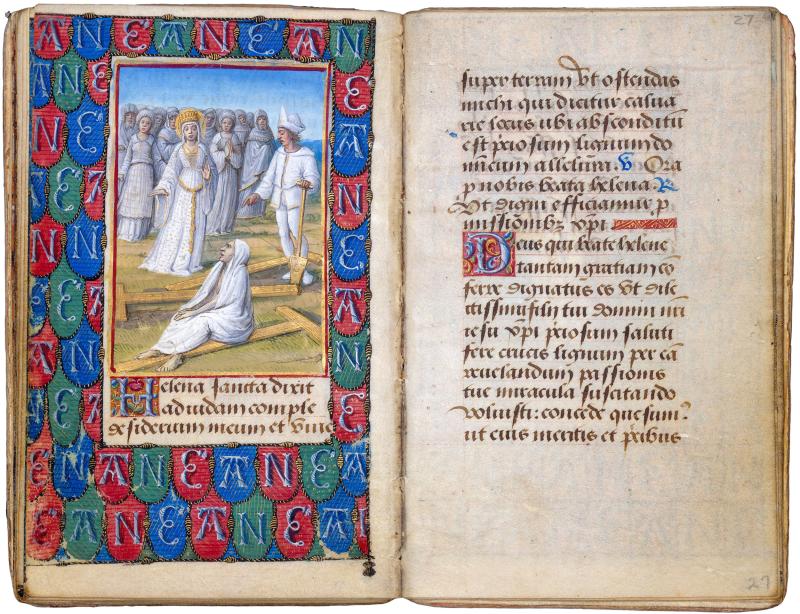 Helena sancta dixit
ad iudam comple
desiderium meum et vive
27
super terram Vt ostendas
michi qui dicitur calua
rie locus ubi absconditū
est p̄ciosum lignum do
minicum allelura. V Ora
p nobis beata helena. R
Vt digni efficiamur p
missionibȝ xp̄i
Deus qui beate helene
tantam gratiam cō
ferre dignatus es Vt dile
ctissimi filii tui domini nr̄i
iesu xp̄i p̄ciosum saluti
fere crucis lignum per eā
reuelandum passionis
tue miracula suscitando
voluisti: concede quesum
ut eius meritis et p̄cibus
27